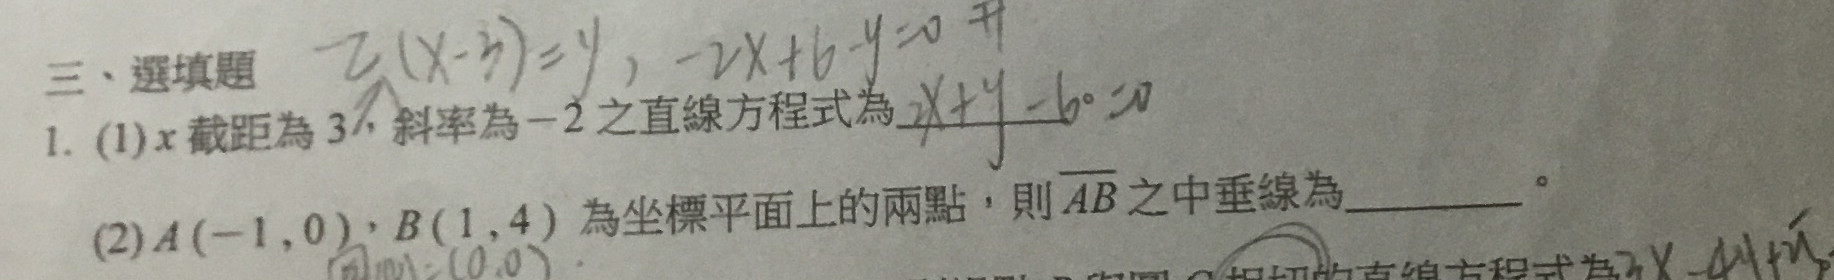 三、選填題 -2(x-3)=y, -2x+6-y=0 #
1. (1) x 截距為 3，斜率為 -2 之直線方程式為 2x+y-6=0。
(2) A(-1,0)，B(1,4) 為坐標平面上的兩點，則 \overline{AB} 之中垂線為______。
=(0,0) 相切的直線方程式為3x-4y+